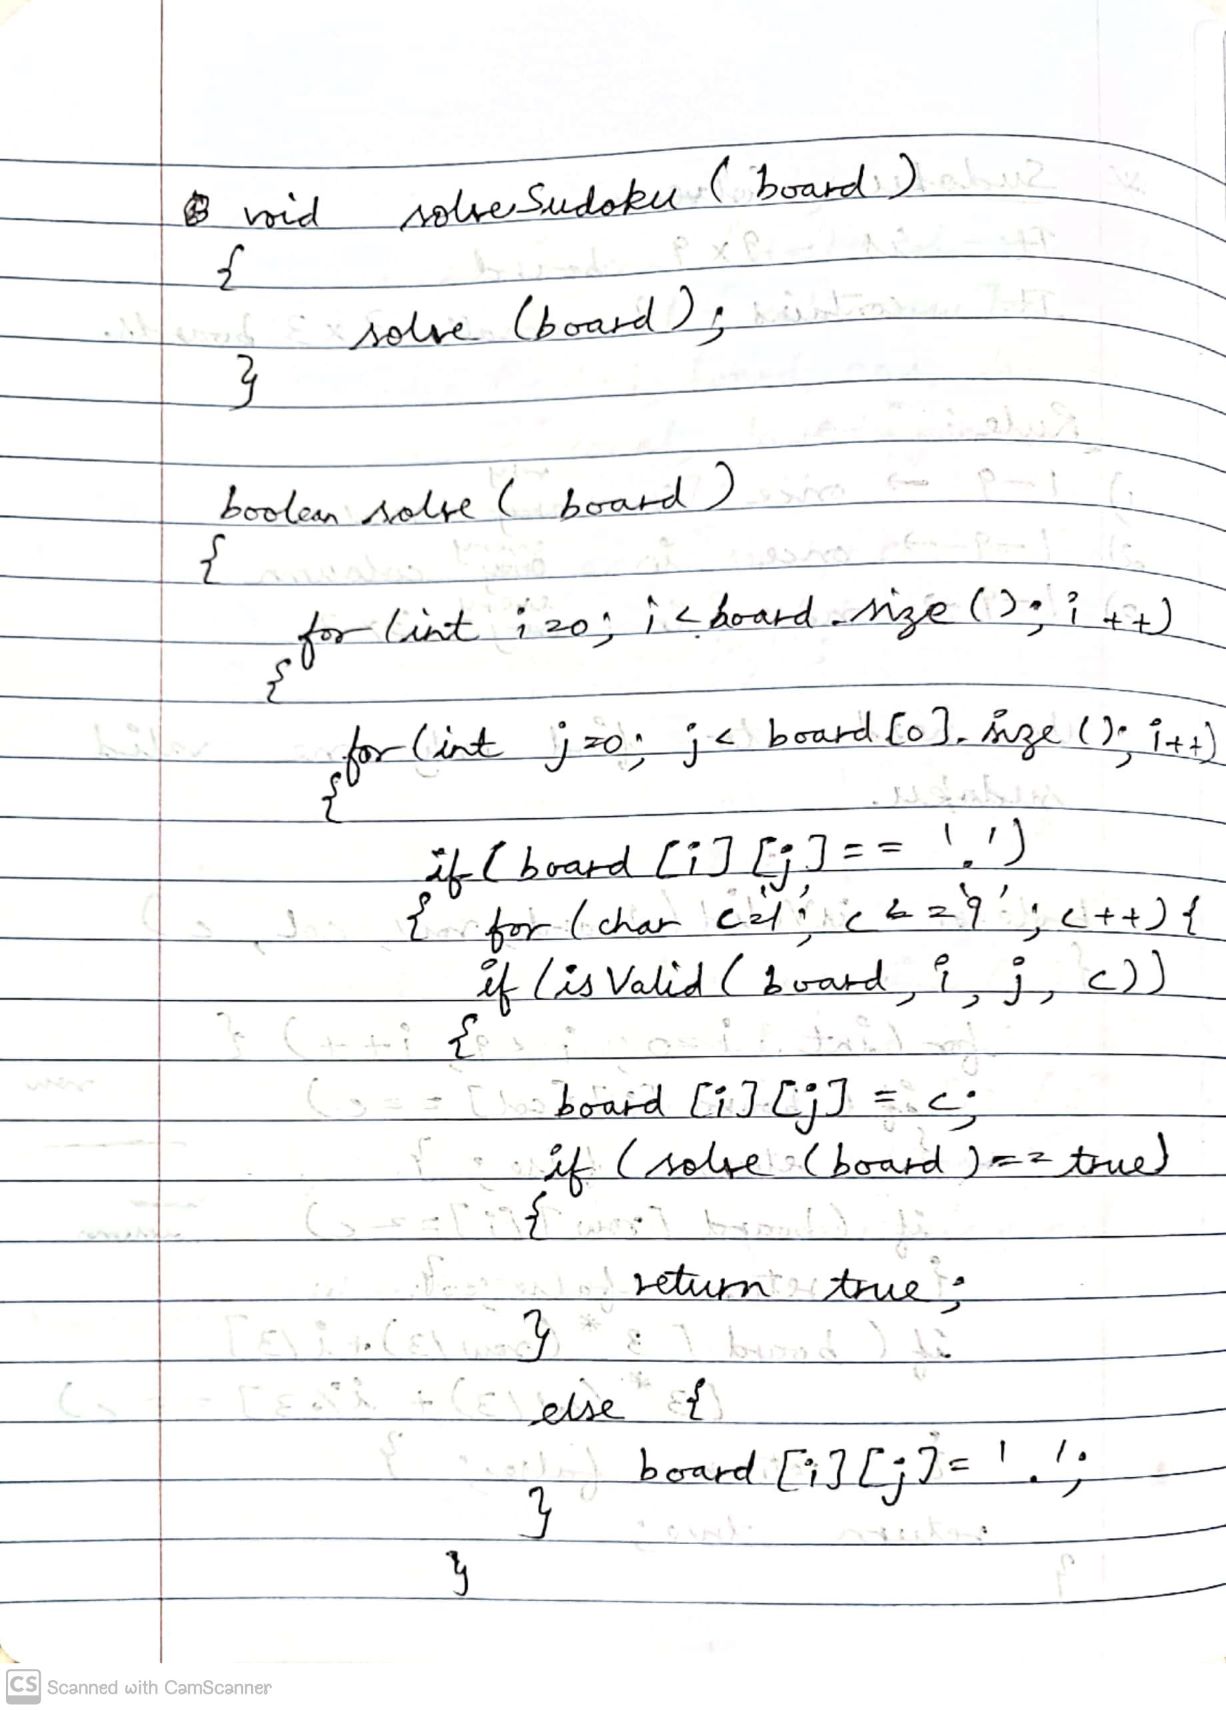 void solveSudoku (board)
{
solve (board);
}
boolean solve ( board )
{
for (int i=0; i < board.size (); i++)
{
for (int j=0; j < board[0].size (); i++)
{
if (board [i] [j] == '.')
{ for (char c='1'; c <= '9'; c++) {
if (isValid (board, i, j, c))
{
board [i] [j] = c;
if (solve (board) == true)
{
return true;
}
else {
board [i] [j] = '.';
}
}
CS Scanned with CamScanner